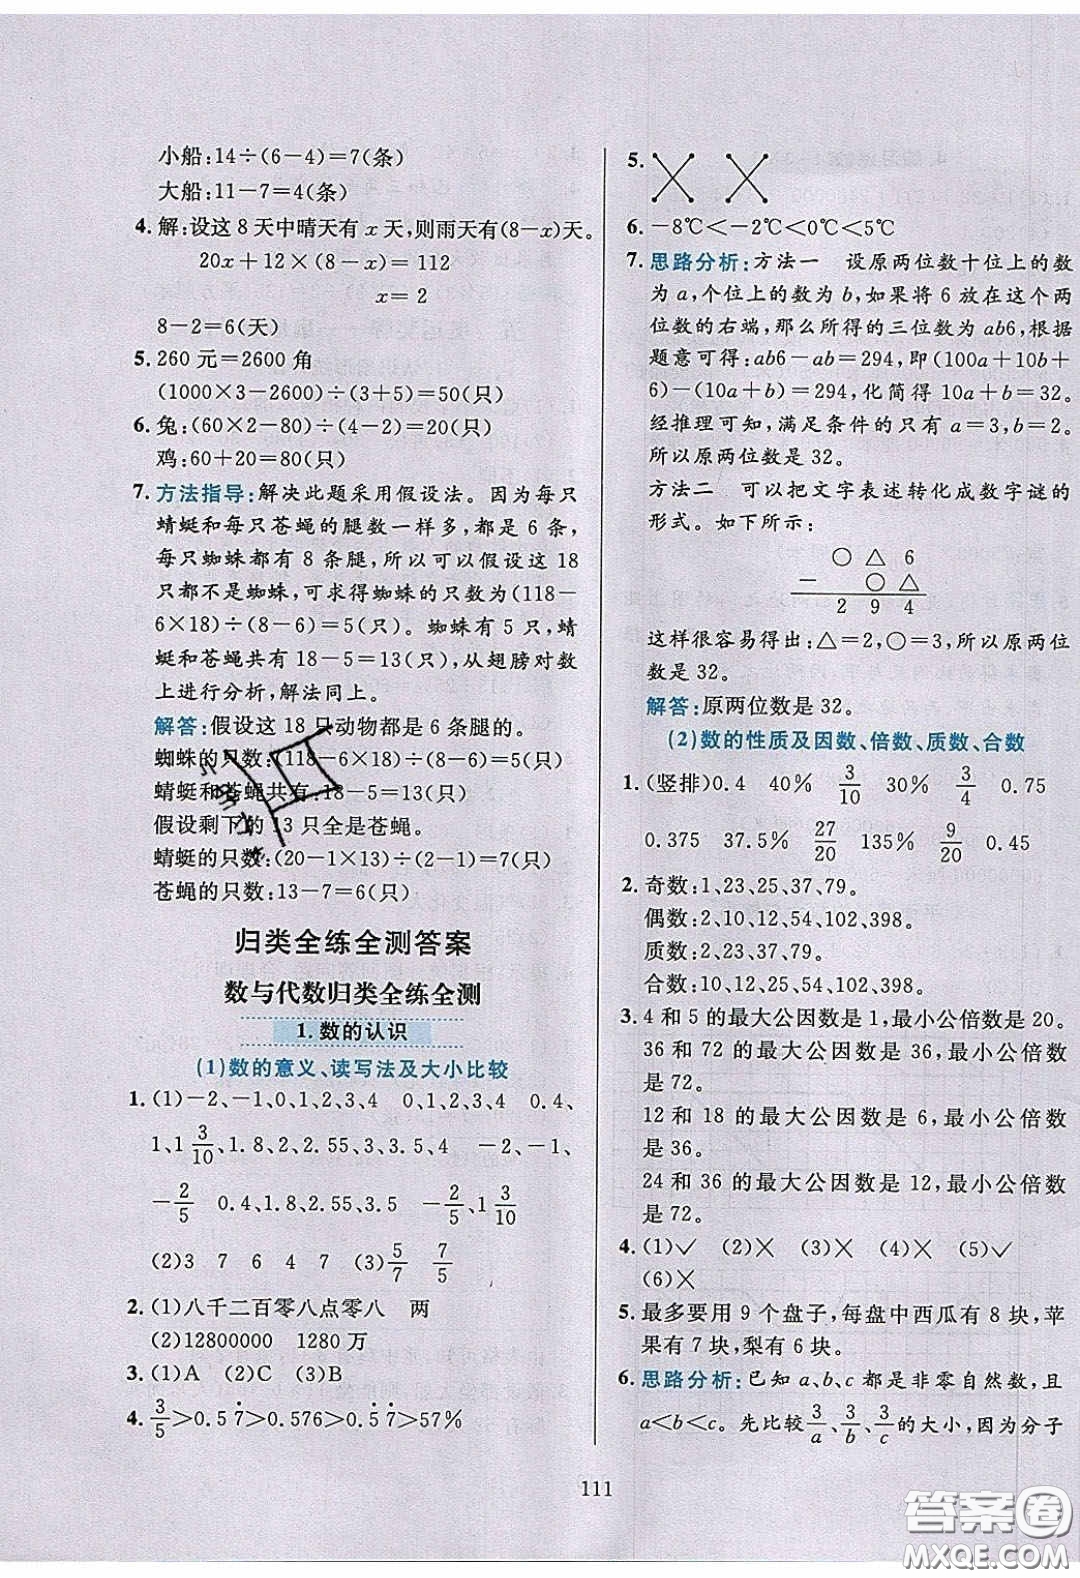 小船:14÷(6－4)=7(条)
大船:11－7=4(条)
4. 解:设这 8 天中晴天有 x 天,则雨天有(8－x)天。
20x＋12×(8－x)=112
x=2
8－2=6(天)
5. 260 元=2600 角
(1000×3－2600)÷(3＋5)=50(只)
6. 兔:(60×2－80)÷(4－2)=20(只)
鸡:60＋20=80(只)
7. 方法指导:解决此题采用假设法。因为每只
蜻蜓和每只苍蝇的腿数一样多,都是 6 条,
每只蜘蛛都有 8 条腿,所以可以假设这 18
只都不是蜘蛛,可求得蜘蛛的只数为(118－
6×18)÷(8－6)=5(只)。蜘蛛有 5 只,蜻
蜓和苍蝇共有 18－5=13(只),从翅膀对数
上进行分析,解法同上。
解答:假设这 18 只动物都是 6 条腿的。
蜘蛛的只数:(118－6×18)÷(8－6)=5(只)
蜻蜓和苍蝇共有:18－5=13(只)
假设剩下的 13 只全是苍蝇。
蜻蜓的只数:(20－1×13)÷(2－1)=7(只)
苍蝇的只数:13－7=6(只)
归类全练全测答案
数与代数归类全练全测
1. 数的认识
(1)数的意义、读写法及大小比较
1. (1)－2、－1、0、1、2、3、4 0、1、2、3、4 0.4、
1、1 3/10、1.8、2.55、3、3.5、4 －2、－1、
－2/5 0.4、1.8、2.55、3.5 －2/5、1 3/10
(2)3 7 6 4 7 (3)5/7 7/5
2. (1)八千二百零八点零八 两
(2)12800000 1280 万
3. (1)A (2)C (3)B
4. 3/5>0.5 7̇>0.576>0.5̇ 7̇>57%
5.
6. －8℃<－2℃<0℃<5℃
7. 思路分析:方法一 设原两位数十位上的数
为 a,个位上的数为 b,如果将 6 放在这个两
位数的右端,那么所得的三位数为 ab6,根据
题意可得:ab6－ab=294,即(100a＋10b＋
6)－(10a＋b)=294,化简得 10a＋b=32。
经推理可知,满足条件的只有 a=3,b=2。
所以原两位数是 32。
方法二 可以把文字表述转化成数字谜的
形式。如下所示:
○ △ 6
－ ○ △
2 9 4
这样很容易得出:△=2,○=3,所以原两位
数是 32。
解答:原两位数是 32。
(2)数的性质及因数、倍数、质数、合数
1. (竖排)0.4 40% 3/10 30% 3/4 0.75
0.375 37.5% 27/20 135% 9/20 0.45
2. 奇数:1,23,25,37,79。
偶数:2,10,12,54,102,398。
质数:2,23,37,79。
合数:10,12,25,54,102,398。
3. 4 和 5 的最大公因数是 1,最小公倍数是 20。
36 和 72 的最大公因数是 36,最小公倍数
是 72。
12 和 18 的最大公因数是 6,最小公倍数
是 36。
24 和 36 的最大公因数是 12,最小公倍数
是 72。
4. (1)√ (2)× (3)× (4)× (5)√
(6)×
5. 最多要用 9 个盘子,每盘中西瓜有 8 块,苹
果有 7 块,梨有 6 块。
6. 思路分析:已知 a、b、c 都是非零自然数,且
a<b<c。先比较 3/a、3/b、3/c 的大小,因为分子
111
答案圈
MXQE.COM